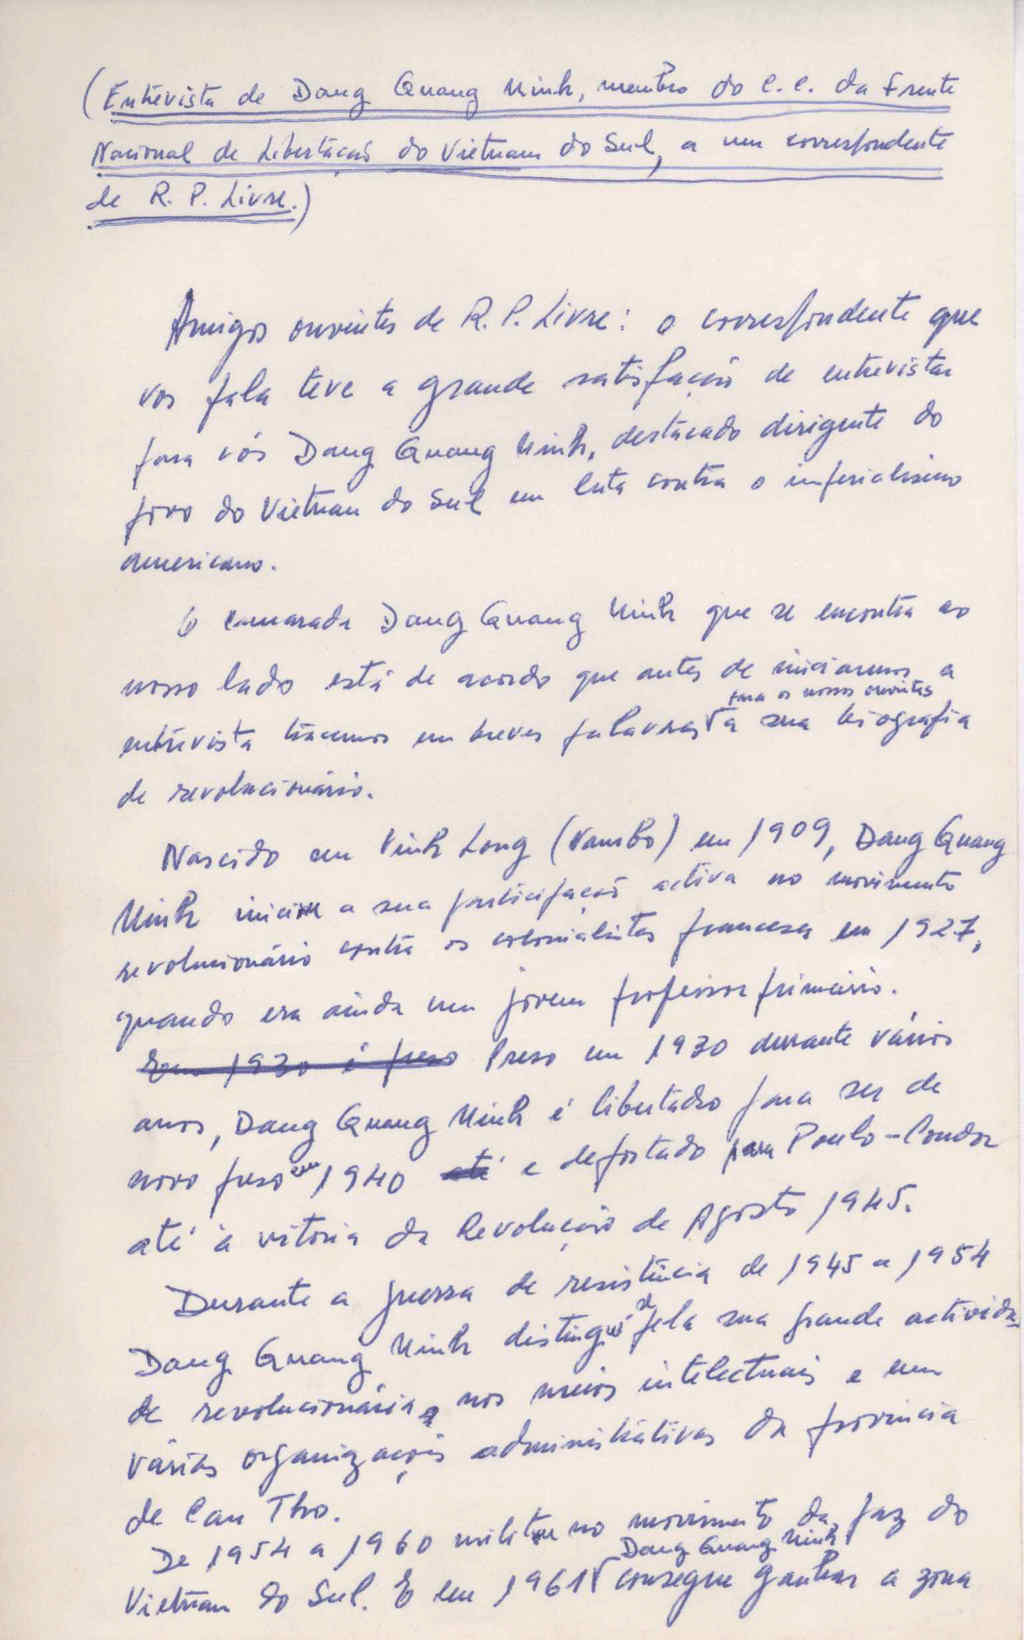 (Entrevista de Dang Quang Minh, membro do C.C. da Frente
Nacional de Libertação do Vietnam do Sul, a um correspondente
de R. P. Livre.)
Amigos ouvintes de R. P. Livre: o correspondente que
vos fala teve a grande satisfação de entrevistar
para vós Dang Quang Minh, destacado dirigente do
povo do Vietnam do Sul em luta contra o imperialismo
americano.
O camarada Dang Quang Minh que se encontra ao
nosso lado está de acordo que antes de iniciarmos a
para os nossos ouvintes
entrevista tracemos em breves palavras a sua biografia
de revolucionário.
Nascido em Vinh Long (Nambo) em 1909, Dang Quang
Minh iniciou a sua participação activa no movimento
revolucionário contra os colonialistas franceses em 1927,
quando era ainda um jovem professor primário.
Em 1930 é preso Preso em 1930 durante vários
anos, Dang Quang Minh é libertado para ser de
novo preso em 1940 até e deportado para Poulo-Condor
até à vitória da Revolução de Agosto 1945.
Durante a guerra de resistência de 1945 a 1954
Dang Quang Minh distingui se pela sua grande activida-
de revolucionária nos meios intelectuais e em
várias organizações administrativas da província
de Can Tho.
De 1954 a 1960 militou no movimento da paz do
Dang Quang Minh
Vietnam do Sul. E em 1961 consegue ganhar a zona